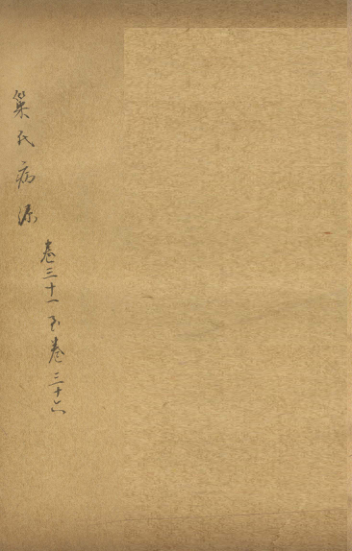 巢氏病源
卷三十一至卷三十六